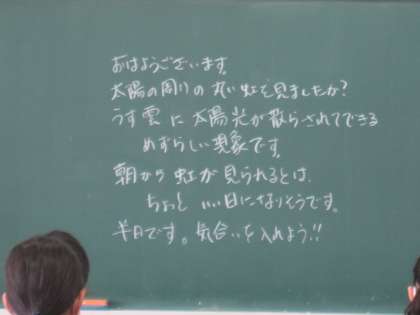 おはようございます。
太陽の周りの丸い虹を見ましたか?
うす雲に太陽光が散らされてできる
めずらしい現象です。
朝から虹が見られるとは、
ちょっといい日になりそうです。
半日です。気合いを入れよう!!